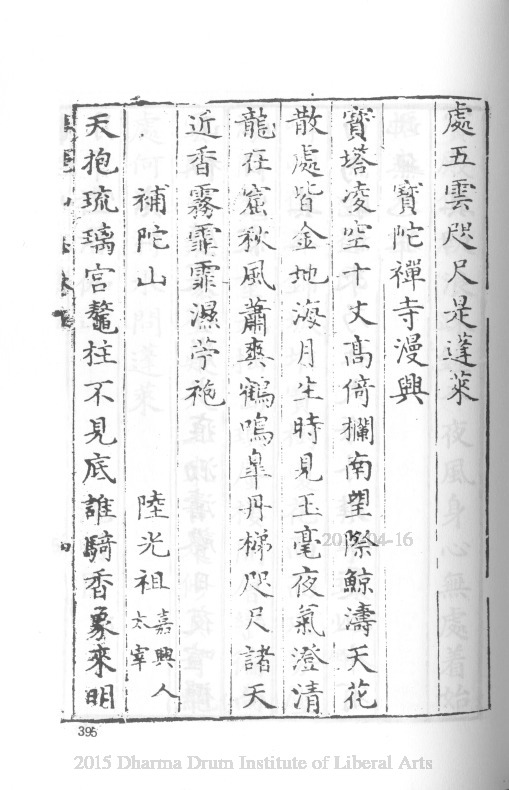 處五雲咫尺是蓬萊
寶陀禪寺漫興
寶塔凌空十丈髙倚欄南望除鯨濤天花
散處皆金地海月生時見玉毫夜氣澄清
龍在窟秋風蕭爽鶴鳴臯丹梯咫尺諸天
近香霧霏霏濕苧袍
補陀山 陸光祖 嘉興人太宰
天抱琉璃宫鼇柱不見底誰騎香象來明
395
2015-04-16
2015 Dharma Drum Institute of Liberal Arts